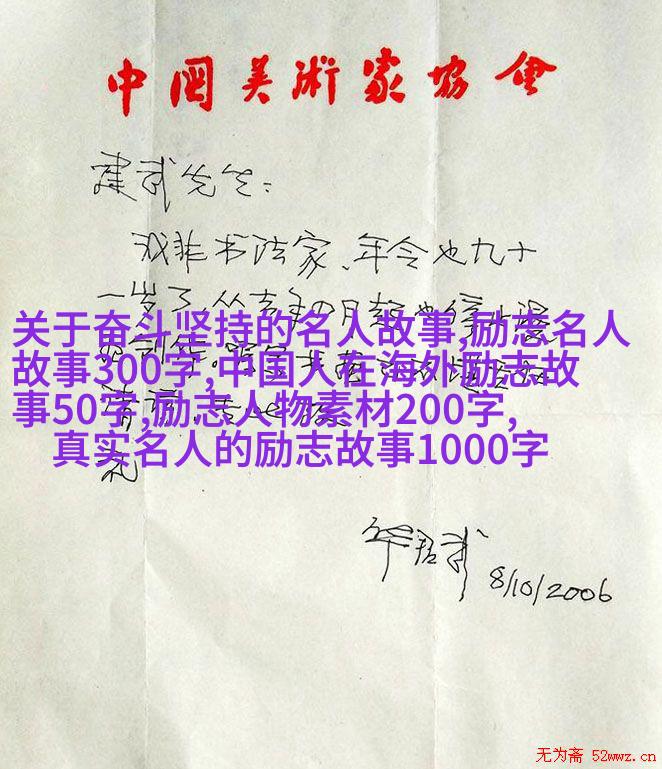 中國美術家協會
建武先生:
我非书法家、年令也九十
一岁了,从去年四月起
关于奋斗坚持的名人故事,励志名人
故事300字,中国人在海外励志故
事50字,励志人物素材200字,
真实名人的励志故事1000字
礼
华君武
8/10/2006
无为斋 52wwz.cn